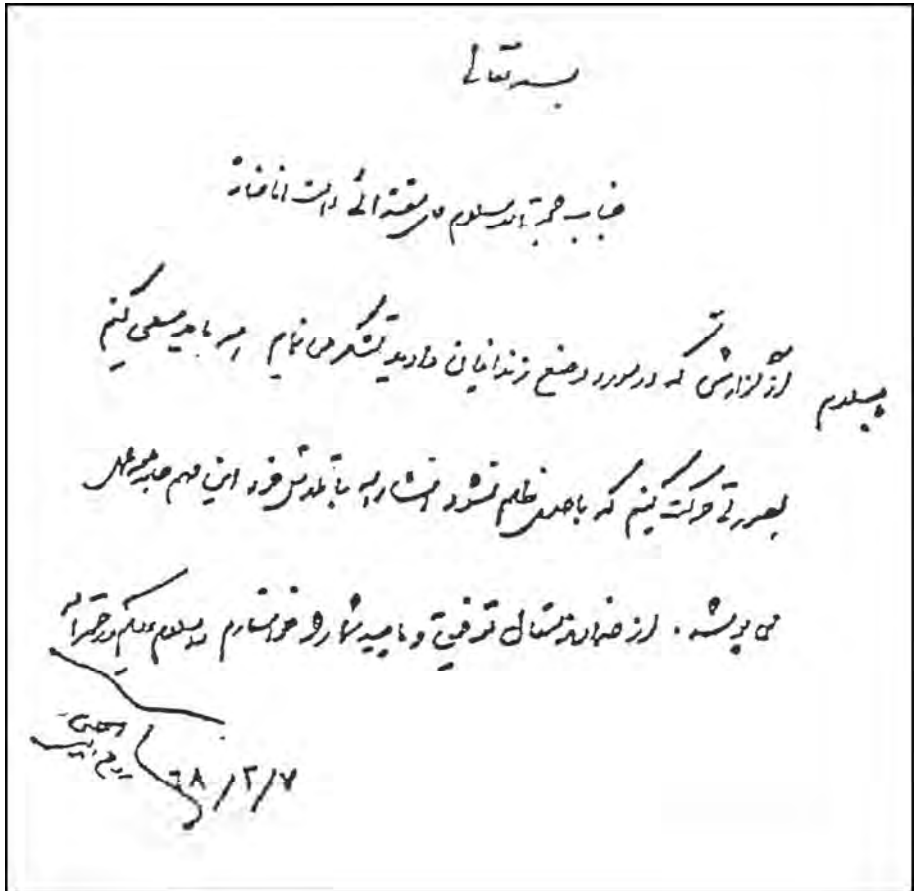 بسمه تعالی
جناب حجة الاسلام آقای مقتدائی دامت افاضاته
باسلام از گزارشی که در مورد وضع زندانیان دادید تشکر می نمایم همه باید سعی کنیم
بصورتی حرکت کنیم که باحدی ظلم نشود انشاءالله با تلاش خود این مهم جامه عمل
می پوشد. از خداوند متعال توفیق و تایید شما را خواستارم والسلام علیکم و رحمة الله
روح الله الموسوی
۶۸/۲/۷